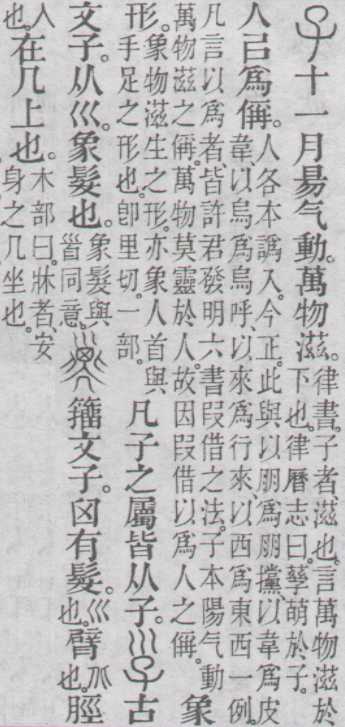 十一月昜气動。萬物滋。律書。子者、滋也。言萬物滋於
下也。律曆志曰。孶萌於子。
人㠯爲偁。人各本譌入。今正。此與以朋爲朋攩、以韋爲皮
韋、以烏爲烏呼、以來爲行來、以西爲東西一例。
凡言以爲者、皆許君發明六書叚借之法。子本陽气動
萬物滋之偁。萬物莫靈於人。故因叚借以爲人之偁。象
形。象物滋生之形。亦象人首與
手足之形也。卽里切。一部。凡子之屬皆从子。古
文子。从巛。象髮也。象髮與
𦣻同意。籒文子。囟有髮。巛也。臂也。脛
人也。在几上也。木部曰。牀者、安
身之几坐也。